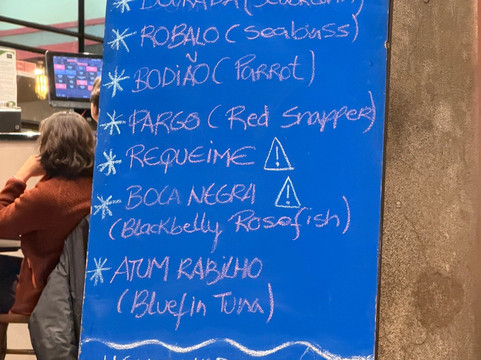 * ROBALO (Seabass)
* BODIÃO (Parrot)
* PARGO (Red Snapper)
* REQUEIME ⚠
* BOCA NEGRA ⚠
(Blackbelly Rosefish)
* ATUM RABILHO
(Bluefin Tuna)